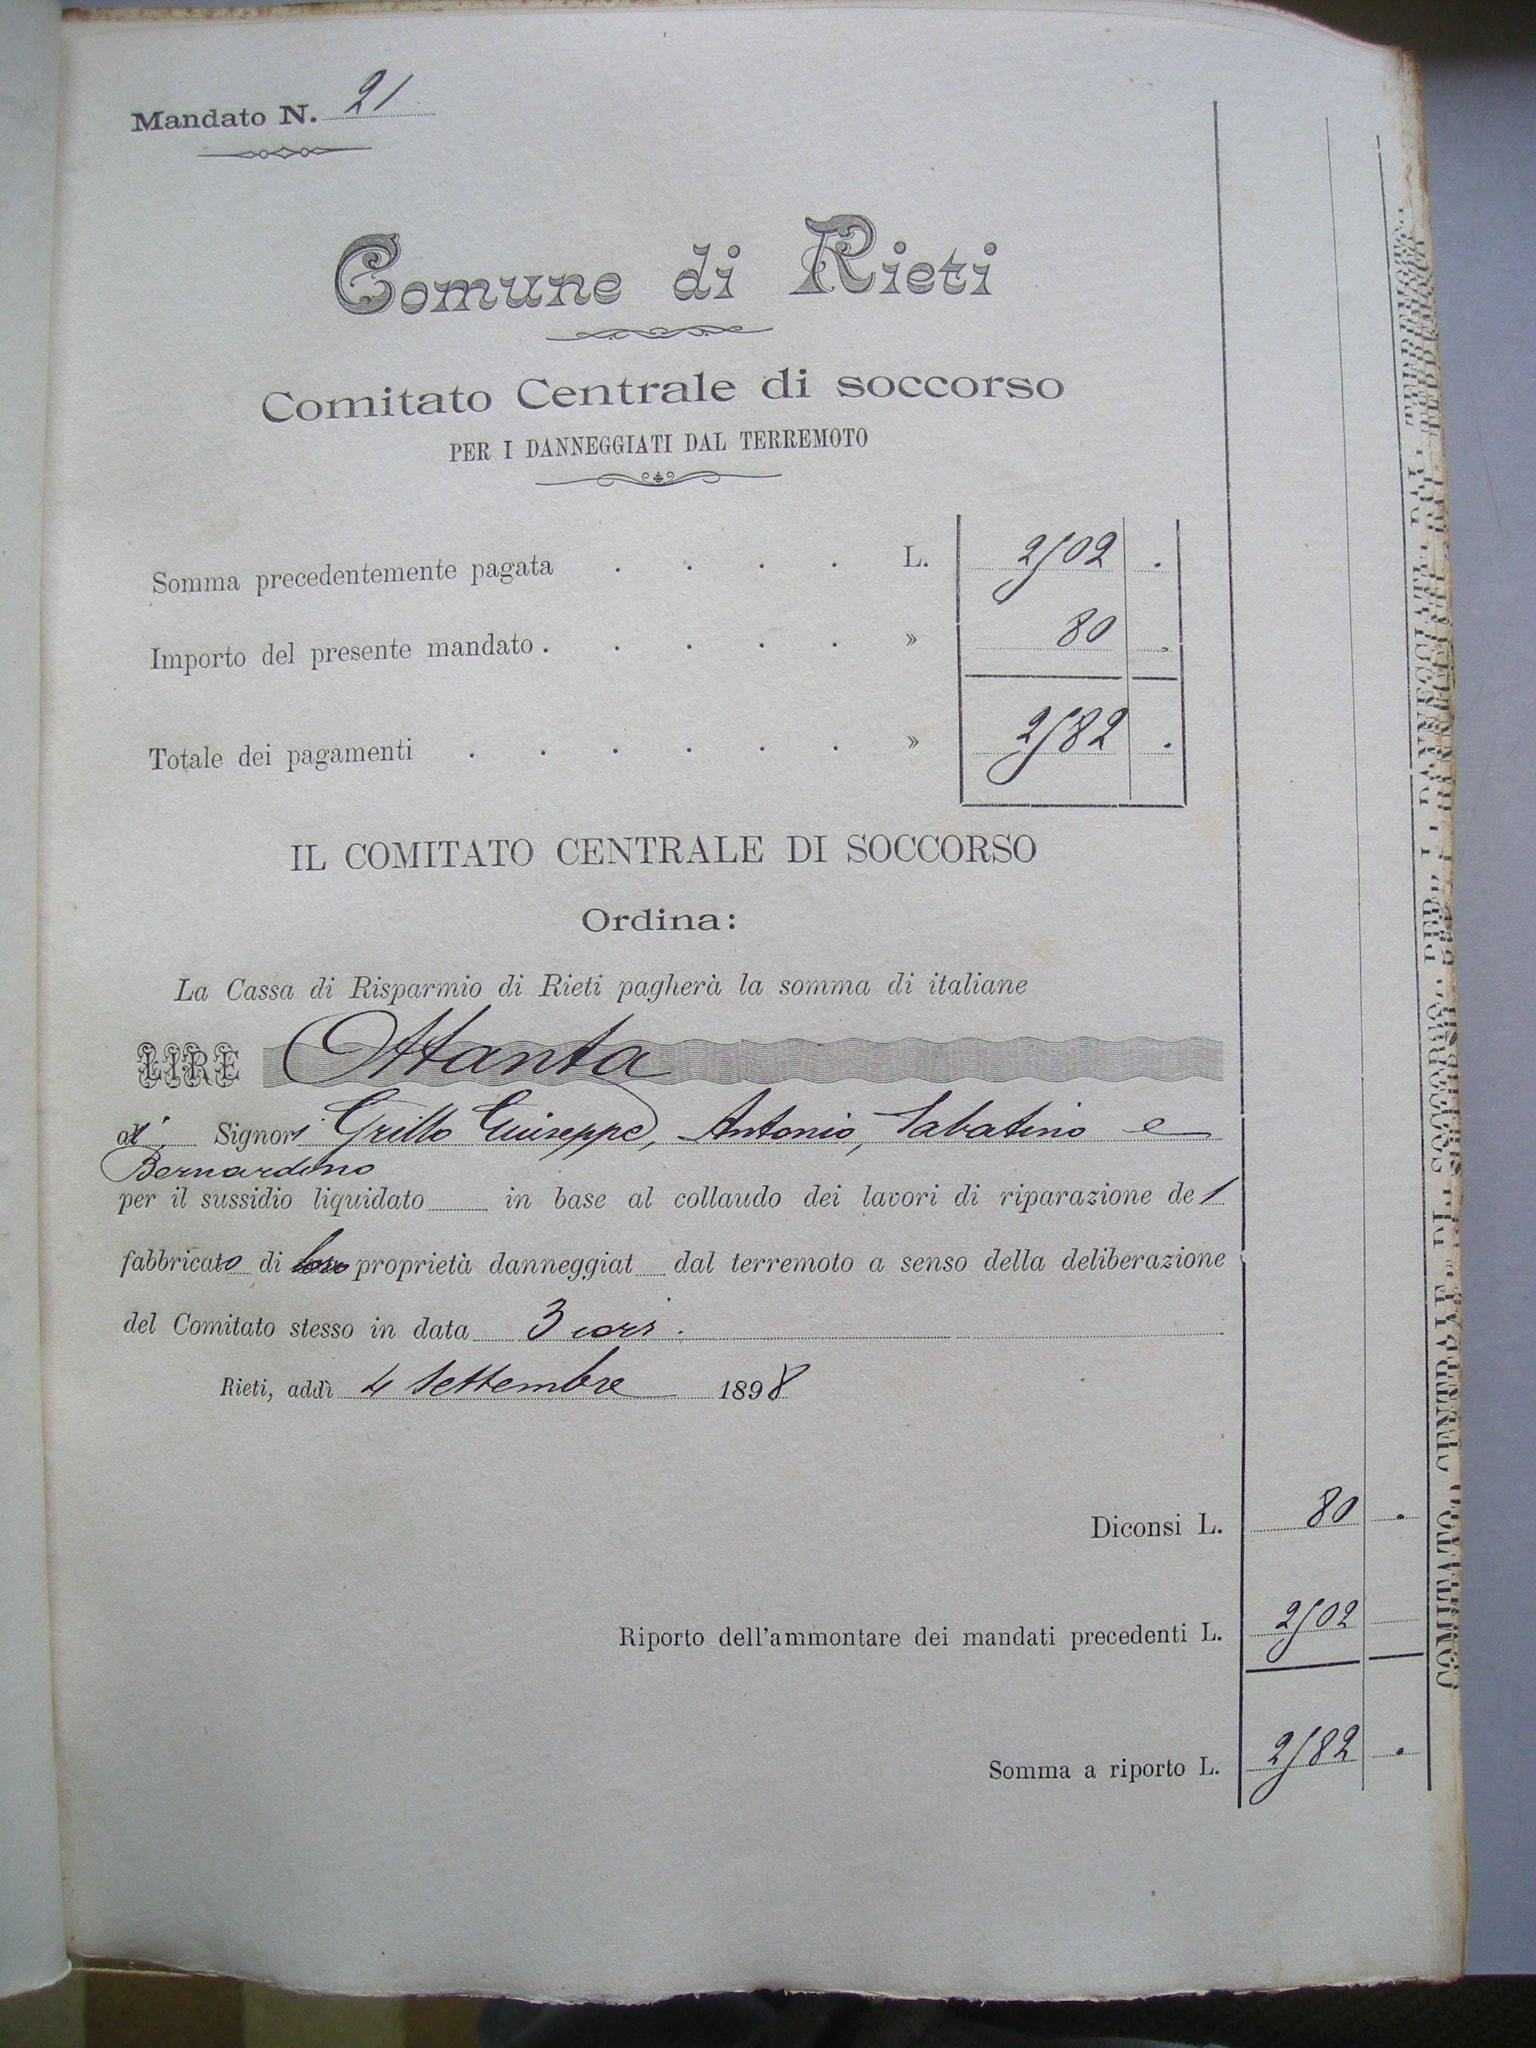 Mandato N. 21
Comune di Rieti
Comitato Centrale di soccorso
PER I DANNEGGIATI DAL TERREMOTO
Somma precedentemente pagata . . . . L. 2502 .
Importo del presente mandato . . . . . » 80 .
Totale dei pagamenti . . . . . . » 2582 .
IL COMITATO CENTRALE DI SOCCORSO
Ordina:
La Cassa di Risparmio di Rieti pagherà la somma di italiane
LIRE Ottanta
ai Signori Grillo Giuseppe, Antonio, Sabatino e
Bernardino
per il sussidio liquidato in base al collaudo dei lavori di riparazione del
fabbricato di loro proprietà danneggiat dal terremoto a senso della deliberazione
del Comitato stesso in data 3 corr.
Rieti, addì 4 Settembre 1898
Diconsi L. 80 .
Riporto dell'ammontare dei mandati precedenti L. 2502
Somma a riporto L. 2582 .